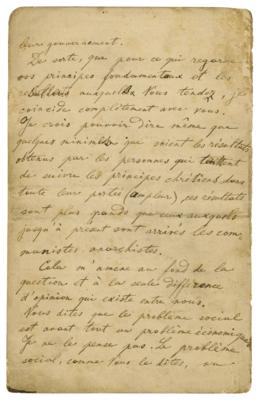 leur gouvernement.
De sorte, que pour ce qui regarde
vos principes fondamentaux et les
résultats auxquels Vous tendez, je
coincide complètement avec vous.
Je crois pouvoir dire même que
quelques minimes que soient les résultats
obtenus par les personnes qui tentent
de suivre les principes chrétiens dans
toute leur portée (ampleur), ces résultats
sont plus grands que ceux auxquels
jusqu'à présent sont arrivés les com
munistes anarchistes.
Cela m'amène au fond de la
question et à la seule différence
d'opinion qui existe entre nous.
Vous dites que le problème social
est avant tout un problème économique
Je ne le pense pas. Le problème
social, comme Vous le dites, un